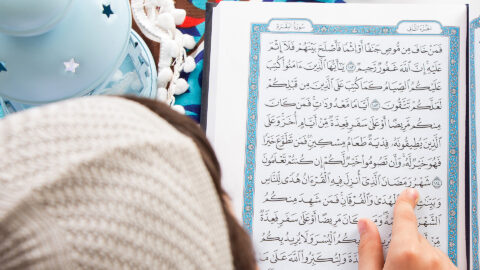 الجزء الثاني
سورة البقرة
فَمَنْ خَافَ مِن مُّوصٍ جَنَفًا أَوْ إِثْمًا فَأَصْلَحَ بَيْنَهُمْ فَلَآ إِثْمَ
عَلَيْهِ إِنَّ ٱللَّهَ غَفُورٌ رَّحِيمٌ ١٨٢ يَٰٓأَيُّهَا ٱلَّذِينَ ءَامَنُوا۟ كُتِبَ
عَلَيْكُمُ ٱلصِّيَامُ كَمَا كُتِبَ عَلَى ٱلَّذِينَ مِن قَبْلِكُمْ
لَعَلَّكُمْ تَتَّقُونَ ١٨٣ أَيَّامًا مَّعْدُودَٰتٍ فَمَن كَانَ
مِنكُم مَّرِيضًا أَوْ عَلَىٰ سَفَرٍ فَعِدَّةٌ مِّنْ أَيَّامٍ أُخَرَ وَعَلَى
ٱلَّذِينَ يُطِيقُونَهُۥ فِدْيَةٌ طَعَامُ مِسْكِينٍ فَمَن تَطَوَّعَ خَيْرًا
فَهُوَ خَيْرٌ لَّهُۥ وَأَن تَصُومُوا۟ خَيْرٌ لَّكُمْ إِن كُنتُمْ تَعْلَمُونَ
١٨٤ شَهْرُ رَمَضَانَ ٱلَّذِىٓ أُنزِلَ فِيهِ ٱلْقُرْءَانُ هُدًى لِّلنَّاسِ
وَبَيِّنَٰتٍ ٱلْهُدَىٰ وَٱلْفُرْقَانِ فَمَن شَهِدَ مِنكُمُ
ٱلشَّهْرَ كَانَ مَرِيضًا أَوْ عَلَىٰ سَفَرٍ فَعِدَّةٌ
بِكُمُ ٱلْيُسْرَ وَلَا يُرِيدُ بِكُمُ
ٱلْعِدَّةَ وَلِتُكَبِّرُوا۟ ٱللَّهَ عَلَىٰ مَا